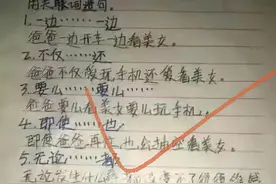 用关联词造句。
1.一边……一边
爸爸一边开车一边看美女。
2.不仅……还
爸爸不仅爱玩手机还爱看美女。
3.要么……要么……
爸爸要么看美女要么玩手机。
4.即使……也
即使爸爸再 也会抽 看美女。
5.无论……都
无论发生什么